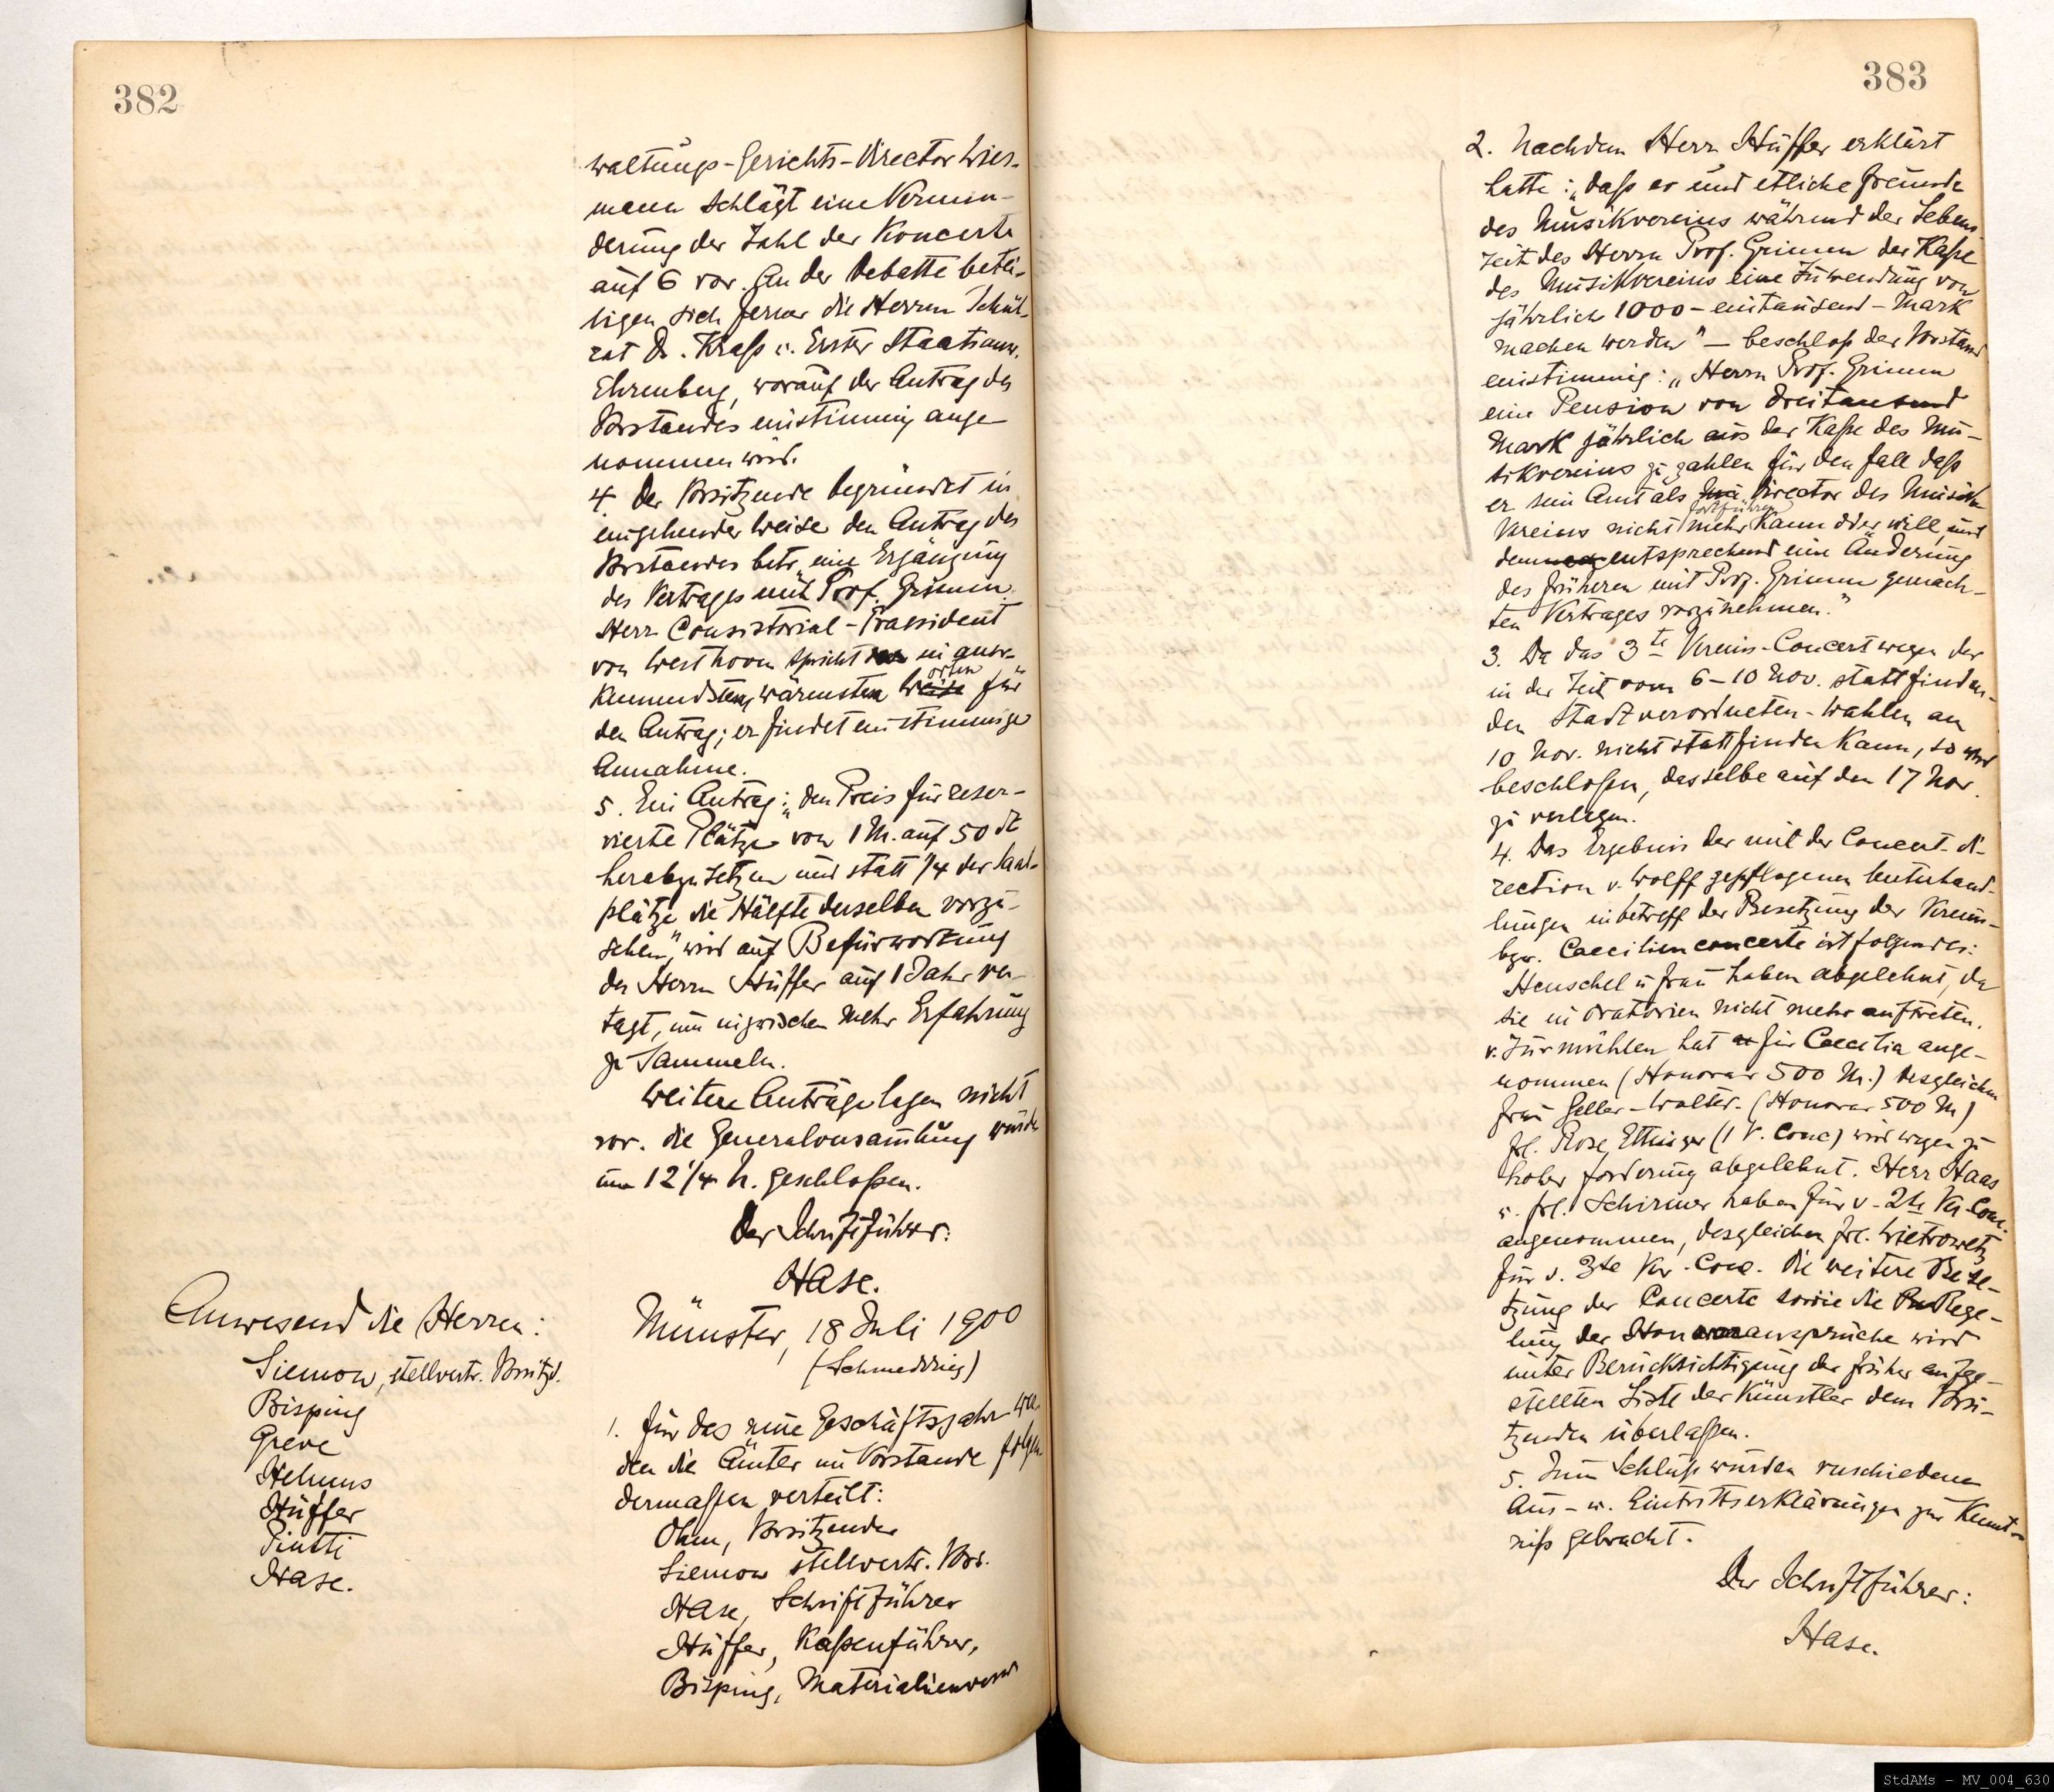 382
waltungs-Gerichts-Director Wies-
mann schlägt eine Vermin-
derung der Zahl der Koncerte
auf 6 vor. An der Debatte betei-
ligen sich ferner die Herren Schul-
rat Dr. Kraß u. Erster Staatsanw.
Ehrenberg, worauf der Antrag des
Vorstandes einstimmig ange-
nommen wird.
4. Der Vorsitzende begründet in
eingehender Weise den Antrag des
Vorstandes betr. eine Ergänzung
des Vertrages mit Prof. Grimm.
Herr Consistorial-Praesident
von Westhoven spricht in aner-
kennendsten, wärmsten Worten für
den Antrag; er findet einstimmige
Annahme.
5. Ein Antrag: „den Preis für reser-
vierte Plätze von 1 M. auf 50 ₰
herabzusetzen und statt 1/4 der Saal-
plätze die Hälfte derselben vorzu-
sehen", wird auf Befürwortung
des Herrn Hüffer auf 1 Jahr ver-
tagt, um inzwischen mehr Erfahrung
zu sammeln.
Weitere Anträge lagen nicht
vor. Die Generalversamlung wurde
um 12 1/4 h. geschloßen.
Der Schriftführer:
Hase.
Anwesend die Herren:
Siemon, stellvertr. Vorsitzd.
Bisping
Greve
Helmus
Hüffer
Piutti
Hase.
Münster, 18 Juli 1900
(Schmedding)
1. Für das neue Geschäftsjahr wer-
den die Ämter im Vorstande folgen-
dermaßen verteilt:
Ohm, Vorsitzender
Siemon stellvertr. Vors.
Hase, Schriftführer
Hüffer, Kaßenführer,
Bisping, Materialienverw
383
2. Nachdem Herr Hüffer erklärt
hatte: „daß er und etliche Freunde
des Musikvereins während der Lebens
zeit des Herrn Prof. Grimm der Kaße
des Musikvereins eine Zuwendung von
jährlich 1000 – eintausend – Mark
machen werden" – beschloß der Vorstand
einstimmig: „Herrn Prof. Grimm
eine Pension von dreitausend
Mark jährlich aus der Kaße des Mu-
sikvereins zu zahlen für den Fall daß
er sein Amt als Director des Musik
Vereins nicht mehr fortführen kann oder will, und
dementsprechend eine Änderung
des früheren mit Prof. Grimm gemach-
ten Vertrages vorzunehmen."
3. Da das 3te Vereins-Concert wegen der
in der Zeit vom 6–10 Nov. stattfinden-
den Stadtverordneten-Wahlen am
10 Nov. nicht stattfinden kann, so wird
beschloßen, dasselbe auf den 17 Nov.
zu verlegen.
4. Das Ergebnis der mit der Concert-di-
rection v. Wolff gepflogenen Unterhand-
lungen inbetreff der Besetzung der Vereins-
bzw. Caecilienconcerte ist folgendes:
Henschel u. Frau haben abgelehnt, da
sie in Oratorien nicht mehr auftreten.
v. Zurmühlen hat für Caecilia ange-
nommen (Honorar 500 M.) desgleichen
Frau Geller-Wolter. (Honorar 500 M)
Frl. Rose Ettinger (1 V. Conc) wird wegen zu
hoher Forderung abgelehnt. Herr Haas
u. Frl. Schirmer haben für d. 2te Ver. Conc.
angenommen, desgleichen Frl. Wietrowetz
für d. 3te Ver. Conc. Die weitere Bese-
tzung der Concerte sowie die Rege-
lung der Honoraransprüche wird
unter Berücksichtigung der früher aufge-
stellten Liste der Künstler dem Vorsi-
tzenden überlaßen.
5. Zum Schluß wurden verschiedene
Aus- u. Eintrittserklärungen zur Kennt-
niß gebracht.
Der Schriftführer:
Hase.
StdAMs – MV_004_630